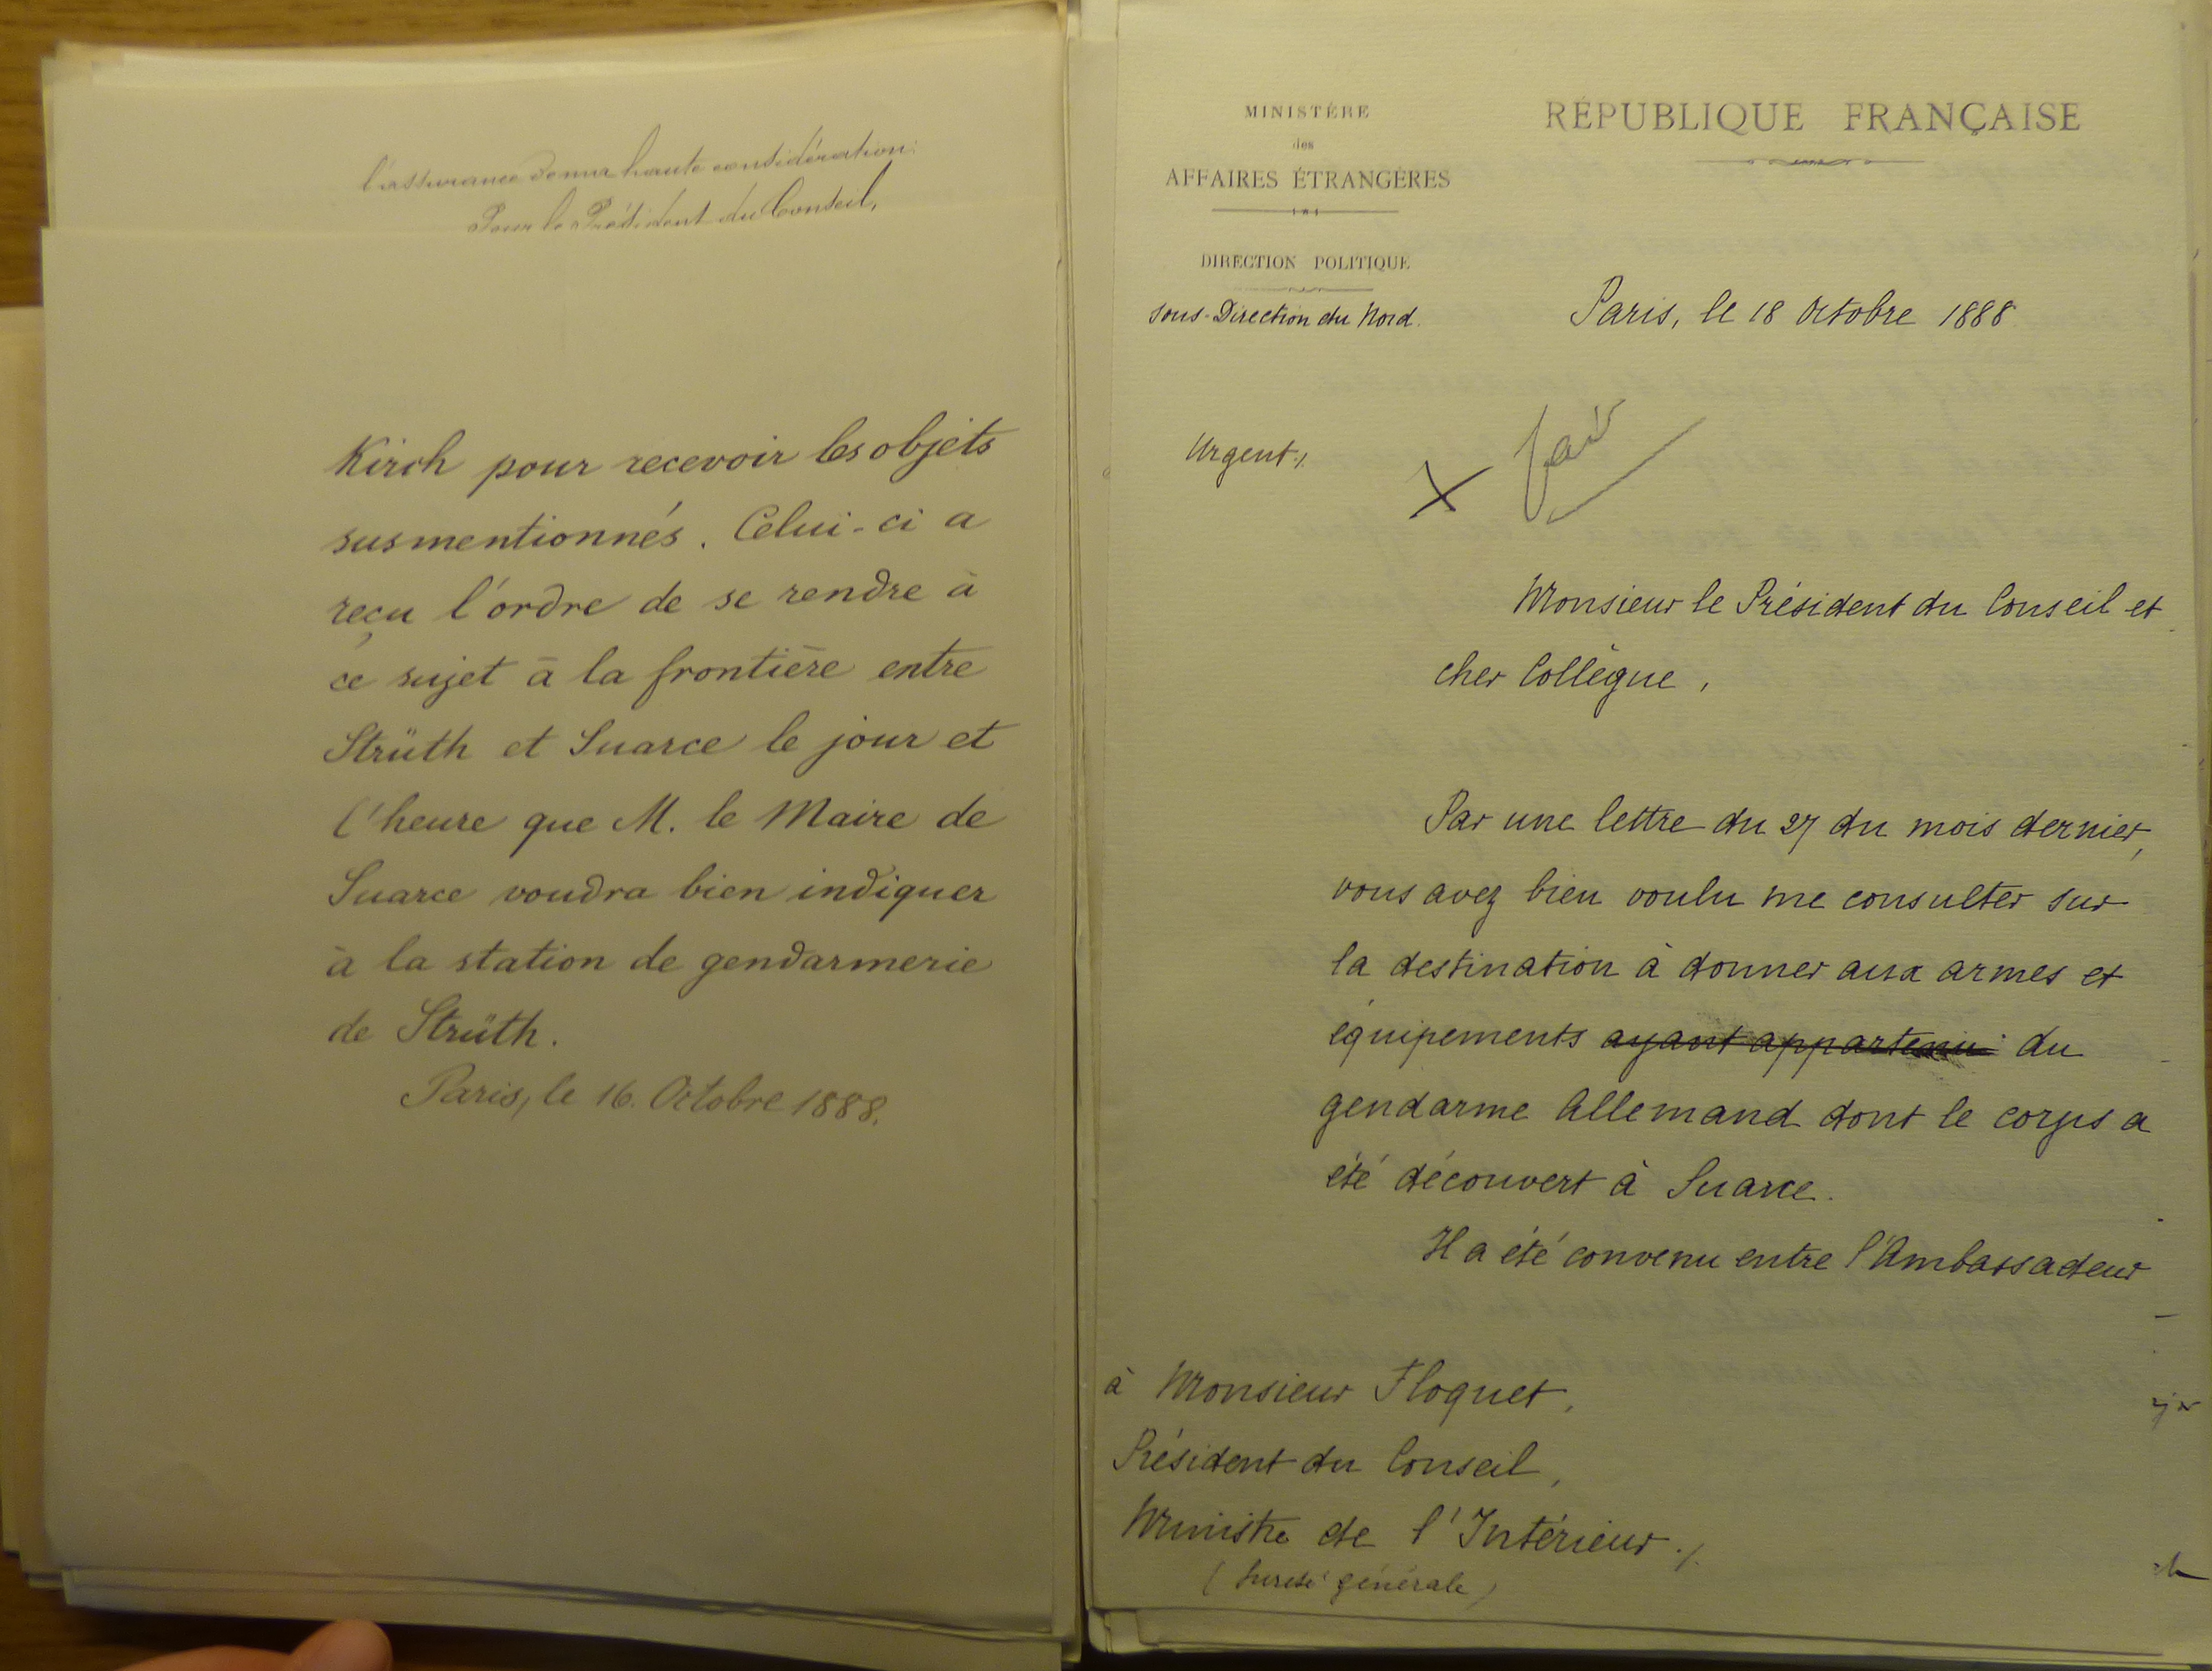 l'assurance de ma haute considération.
Pour le Président du Conseil,
Kirch pour recevoir les objets
susmentionnés. Celui-ci a
reçu l'ordre de se rendre à
ce sujet à la frontière entre
Strüth et Suarce le jour et
l'heure que M. le Maire de
Suarce voudra bien indiquer
à la station de gendarmerie
de Strüth.
Paris, le 16. Octobre 1888.
MINISTÈRE
des
AFFAIRES ÉTRANGÈRES
DIRECTION POLITIQUE
sous-Direction du Nord.
RÉPUBLIQUE FRANÇAISE
Paris, le 18 Octobre 1888
Urgent ./.
X fait
Monsieur le Président du Conseil et
cher Collègue,
Par une lettre du 27 du mois dernier,
vous avez bien voulu me consulter sur
la destination à donner aux armes et
équipements ayant appartenu du
gendarme Allemand dont le corps a
été découvert à Suarce.
Il a été convenu entre l'Ambassadeur
à Monsieur Floquet,
Président du Conseil,
Ministre de l'Intérieur ./.
(Sureté générale)